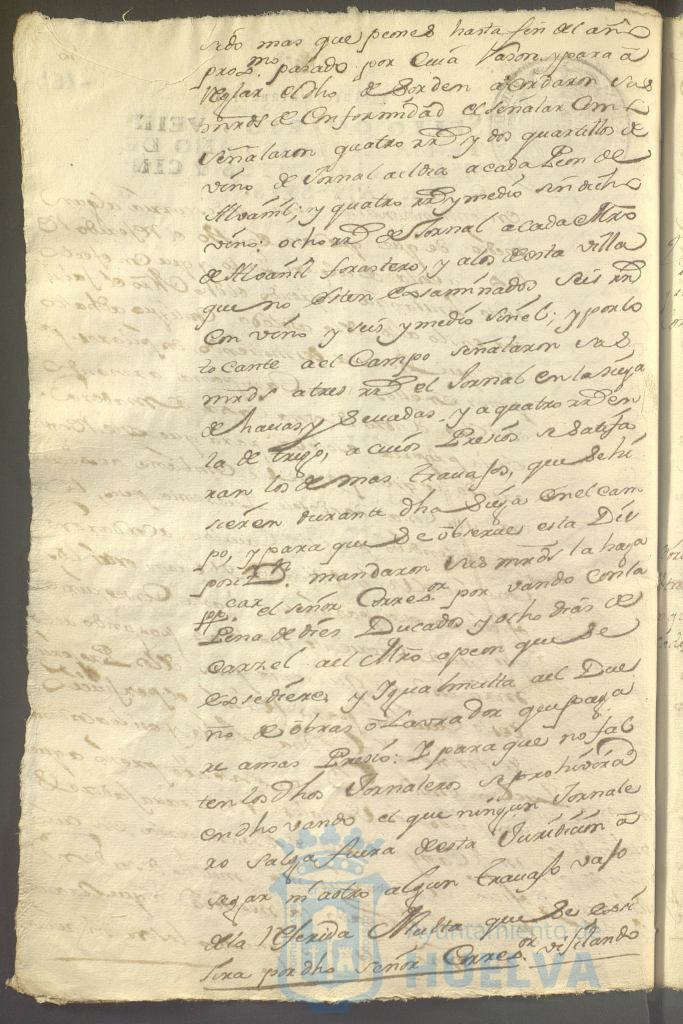 sido mas que peones hasta fin del año
pro.mo pasado por cuia razon, y para a
reglar el dho desorden acordaron sus
mrds de conformidad el señalar como
señalaron quatro rrs y dos quartillos de
vino de Jornal al dia a cada Peon de
Alvañil; y quatro rrs y medio sin dicho
vino: ocho rrs de Jornal a cada Mro
de Alvañil forastero, y a los desta villa
que no esten exsaminados seis rrs
con vino y seis y medio sin el; y por lo
tocante a el Campo señalaron sus
mrds a tres rrs el Jornal en la siega
de havas y Sevadas, y a quatro rrs en
la de trigo, a cuios Presios se satisfa
ran los demas travajos, que se hi
sieren durante dha Siega en el cam
po, y para que se observe esta Dis
posi.on mandaron sus mrds la haga
p.car el señor Corre.or por vando con la
Pena de dies Ducados y ocho dias de
Carzel al Mro o peon que se
exsediere, y Igual multa al Due
ño de obras o Lavrador que paga
re a mas Presio: Y para que no fal
ten los dhos Jornaleros se prohivira
en dho vando el que ningun Jornale
ro salga fuera desta Juridicion a
segar ni a otro algun travajo vajo
de la referida Multa que se exsi
jira por dho señor Corre.or visitando
Ayuntamiento de
HUELVA